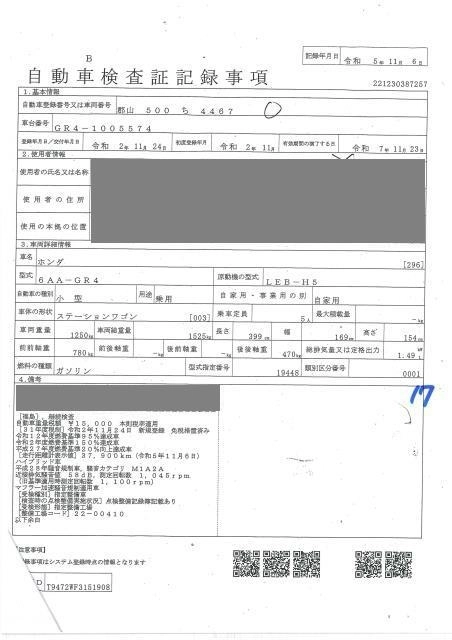 B
記録年月日 令和 5年 11月 6日
自動車検査証記録事項
221230387257
1.基本情報
自動車登録番号又は車両番号 郡山 500 ち 4467
車台番号 GR4-1005574
登録年月日/交付年月日 令和 2年 11月 24日 初度登録年月 令和 2年 11月 有効期間の満了する日 令和 7年 11月 23日
2.使用者情報
使用者の氏名又は名称
使用者の住所
使用の本拠の位置
3.車両詳細情報
車名 ホンダ [296]
型式 6AA-GR4 原動機の型式 LEB-H5
自動車の種別 小型 用途 乗用 自家用・事業用の別 自家用
車体の形状 ステーションワゴン [003] 乗車定員 5人 最大積載量 -kg
車両重量 1250kg 車両総重量 1525kg 長さ 399cm 幅 169cm 高さ 154cm
前前軸重 780kg 前後軸重 -kg 後前軸重 -kg 後後軸重 470kg 総排気量又は定格出力 1.49
燃料の種類 ガソリン 型式指定番号 19448 類別区分番号 0001
4.備考
17
[福島],継続検査
自動車重量税額 ¥15,000 本則税率適用
[31年度税制]令和2年11月24日 新規登録 免税措置済み
令和12年度燃費基準95%達成車
令和2年度燃費基準150%達成車
平成27年度燃費基準20%向上達成車
[走行距離計表示値] 37,900km (令和5年11月6日)
ハイブリッド車
平成28年騒音規制車,騒音カテゴリ M1A2A
近接排気騒音値 58dB,測定回転数 1,045rpm
(旧基準適用時測定回転数 1,100rpm)
マフラー加速騒音規制適用車
[受検種別]指定整備車
[検査時の点検整備実施状況]点検整備記録簿記載あり
[受検形態]指定整備工場
[整備工場コード] 22-00410
以下余白
注意事項]
録事項はシステム登録時点の情報となります
D T9472WF3151908